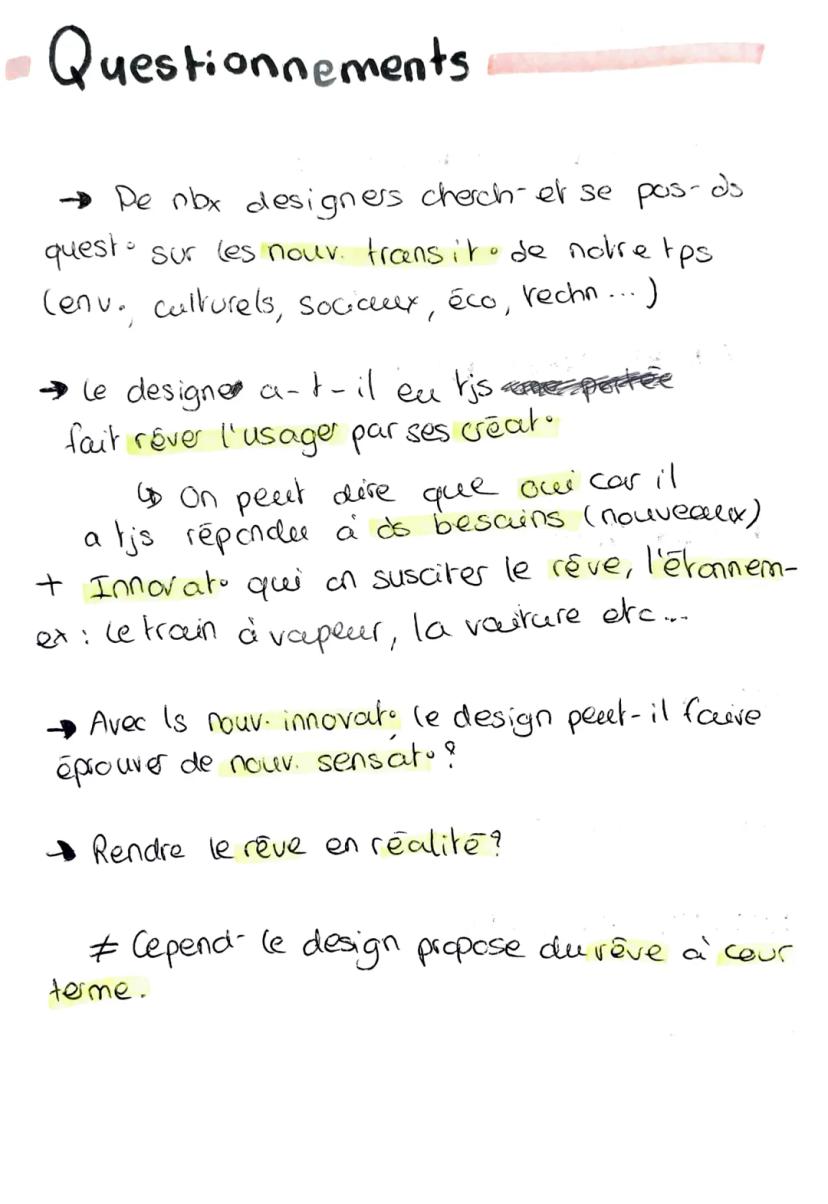 Questionnements
→ De nbx designers cherch- et se pos- ds
quest° sur les nouv. transit° de notre tps
(env., culturels, sociaux, éco, techn ...)
→ le designer a-t-il eu tjs
fait rêver l'usager par ses créat°
↳ On peut dire que oui car il
a tjs répondu à ds besoins (nouveaux)
+ Innovat° qui on susciter le rêve, l'étonnem-
ex : le train à vapeur, la voiture etc...
→ Avec ls nouv. innovat° le design peut-il faire
éprouver de nouv. sensat° ?
→ Rendre le rêve en réalité ?
≠ Cepend- le design propose du rêve à cour
terme.